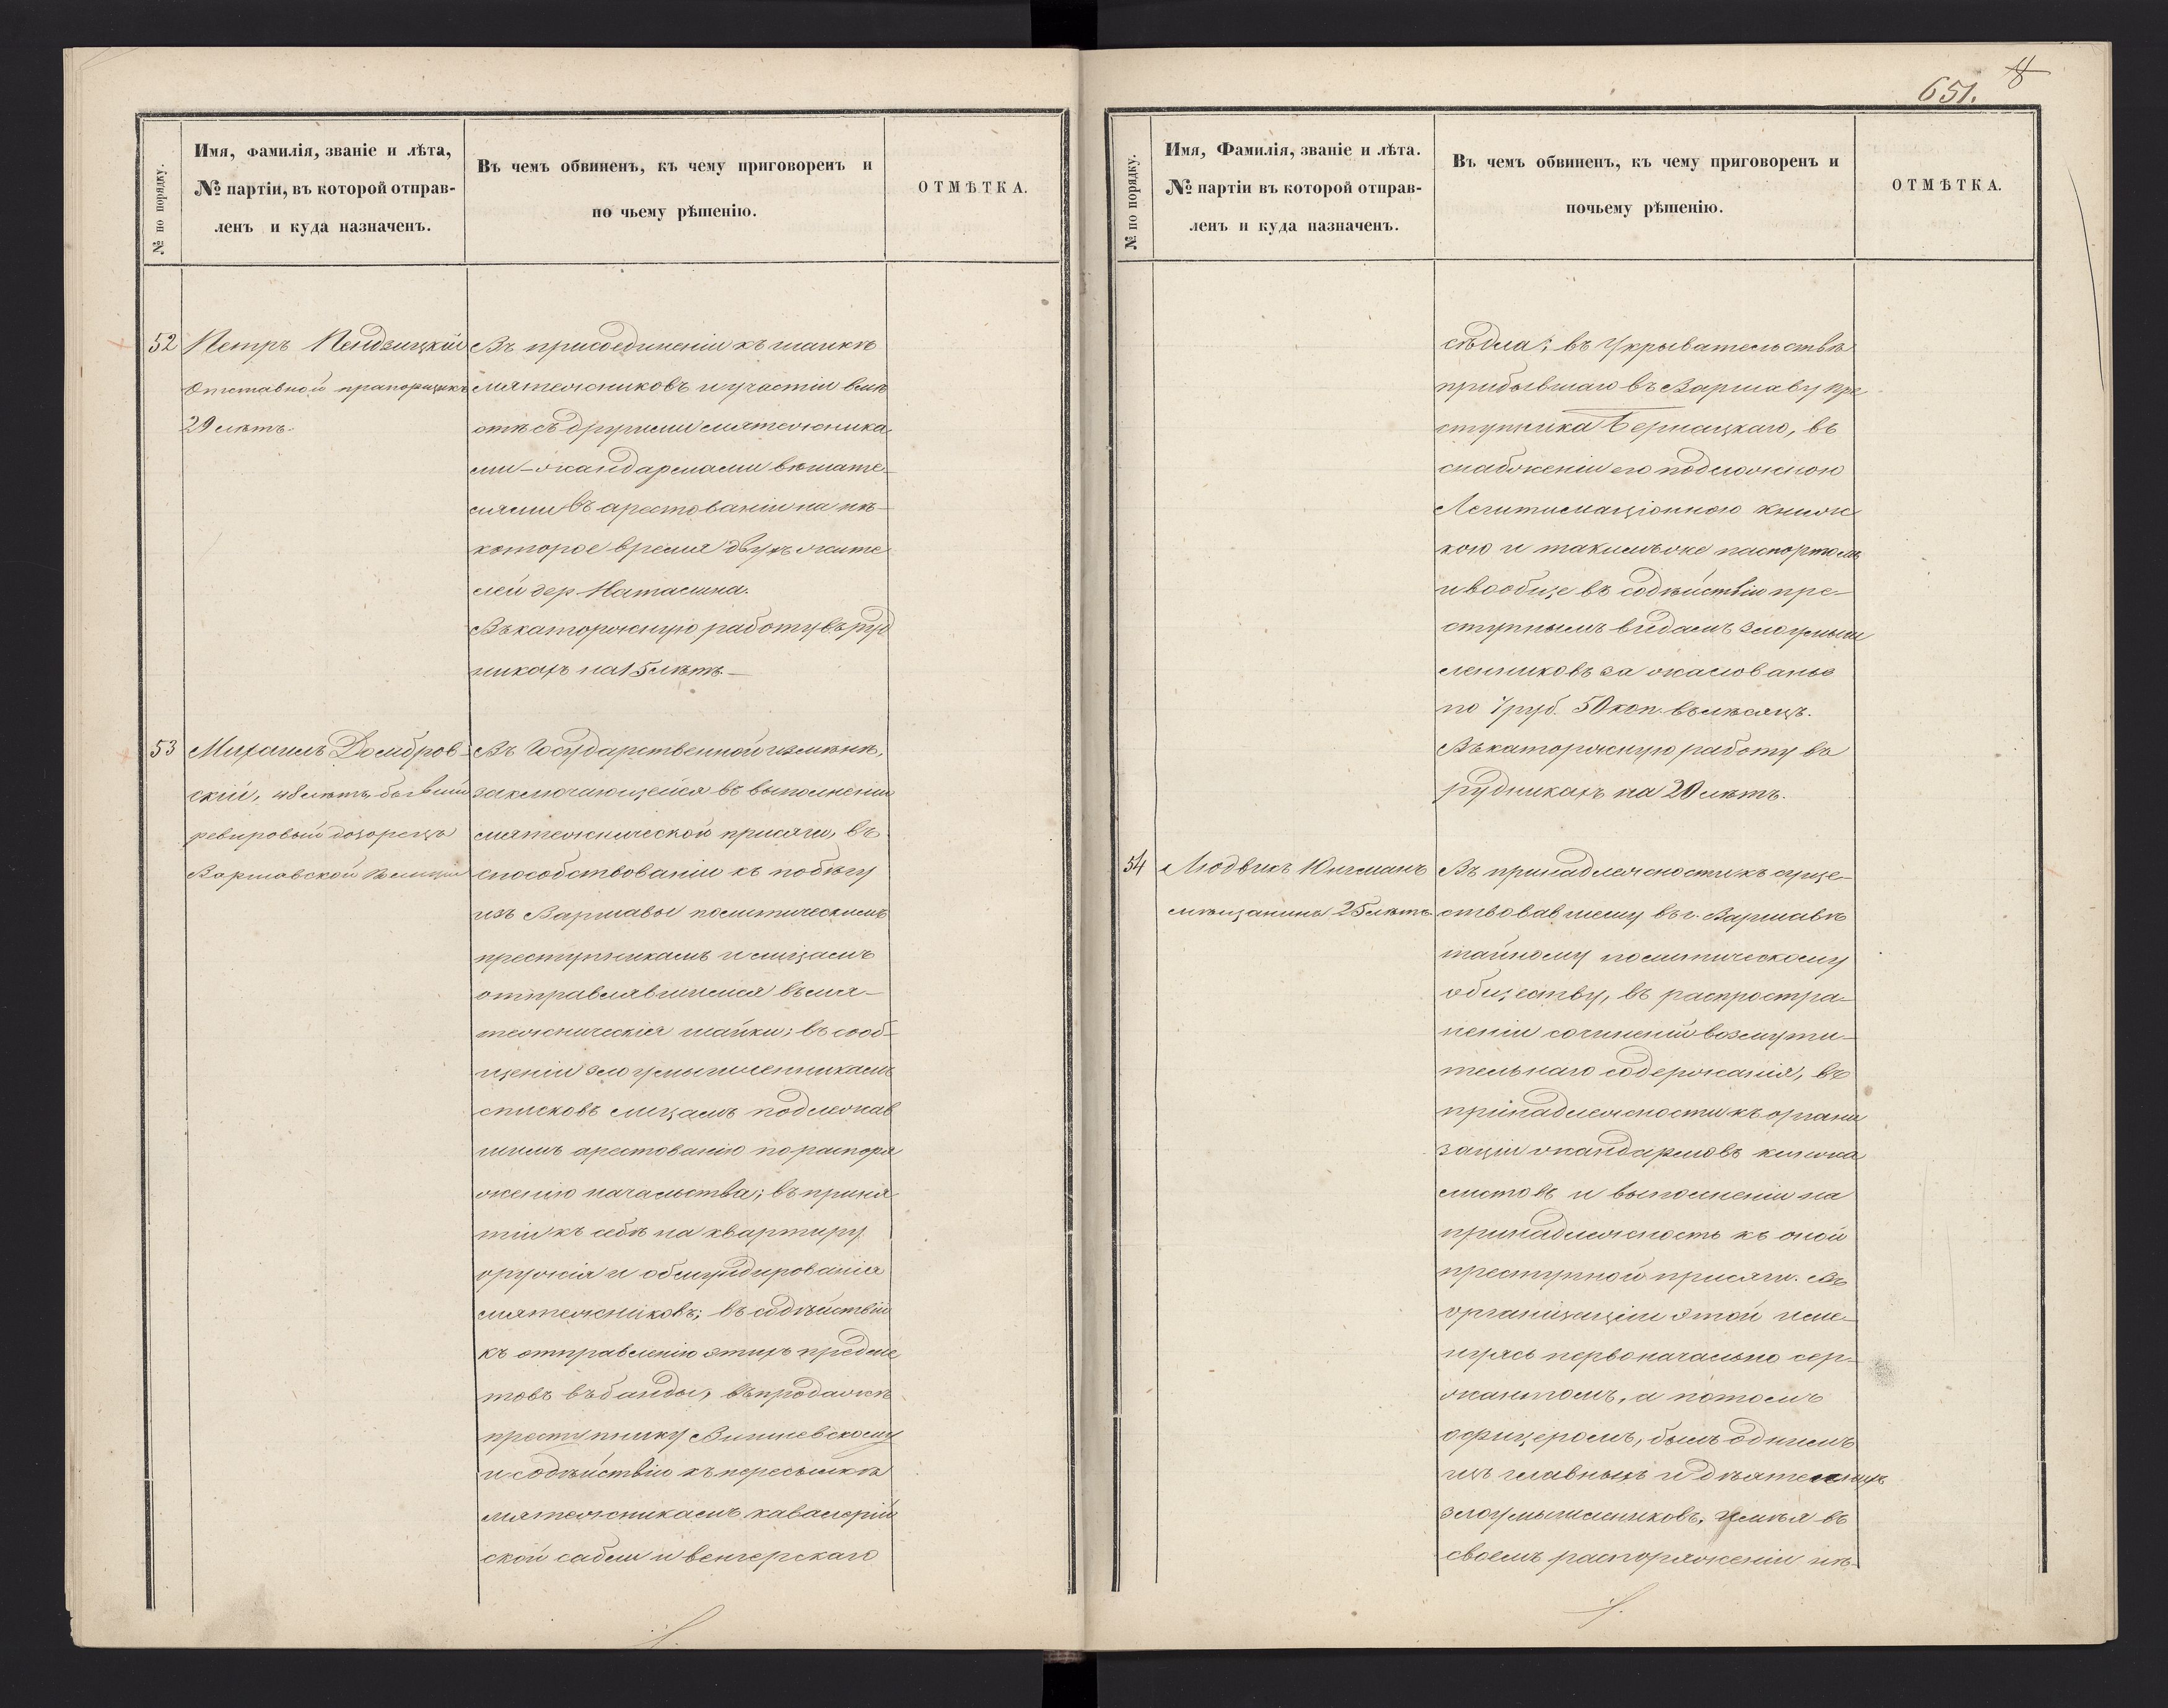 651. 8
№ по порядку.
Имя, фамилія, званіе и лѣта,
№ партіи, въ которой отправ-
ленъ и куда назначенъ.
Въ чемъ обвиненъ, къ чему приговоренъ и
по чьему рѣшенію.
ОТМѢТКА.
52
Петръ Пендзицкій
Отставной прапорщикъ
29 лѣтъ.
Въ присоединеніи къ шайкѣ
мятежниковъ и участіи вмѣ
стѣ съ другими мятежника
ми-жандармами вѣшате-
лями въ арестованіи на нѣ-
которое время двухъ жите
лей дер. Наталина.
Въ каторжную работу въ руд
никахъ на 15 лѣтъ.
53
Михаилъ Домбров-
скій, 48 лѣтъ, бывшій
ревировый дозорецъ
Варшавской Полиціи
Въ Государственной измѣнѣ,
заключающейся въ выполненіи
мятежнической присяги, въ
способствованіи къ побѣгу
изъ Варшавы политическимъ
преступникамъ и лицамъ
отправлявшимся въ мя-
тежническія шайки; въ сооб-
щеніи злоумышленникамъ
списковъ лицамъ подлежав
шимъ арестованію по распоря
женію начальства; въ приня
тіи къ себѣ на квартиру
оружія и обмундированія
мятежниковъ; въ содѣйствіи
къ отправленію этихъ предме
товъ въ банды, въ продажѣ
преступнику Вишневскому
и содѣйствіи къ пересылкѣ
мятежникамъ кавалерій
ской сабли и венгерскаго
№ по порядку.
Имя, Фамилія, званіе и лѣта.
№ партіи въ которой отправ-
ленъ и куда назначенъ.
Въ чемъ обвиненъ, къ чему приговоренъ и
почьему рѣшенію.
ОТМѢТКА.
сѣдла; въ укрывательствѣ
прибывшаго въ Варшаву пре
ступника Бернацкаго, въ
снабженіи его подложною
Легитимаціонною книж
кою и такимъ же паспортомъ
и вообще въ содѣйствіи пре-
ступнымъ видамъ злоумыш
ленниковъ за жалованье
по 7 руб. 50 коп. въ мѣсяцъ.
Въ каторжную работу въ
рудникахъ на 20 лѣтъ.
54
Людвикъ Юнгманъ
мѣщанинъ 25 лѣтъ.
Въ принадлежности къ суще-
ствовавшему въ г. Варшавѣ
тайному политическому
обществу, въ распростра-
неніи сочиненій возмути-
тельнаго содержанія, въ
принадлежности къ органи
заціи жандармовъ кинжа
листовъ и выполненіи на
принадлежность къ оной
преступной присяги. Въ
организаціи этой име-
нуясь первоначально сер-
жантомъ, а потомъ
офицеромъ, былъ однимъ
изъ главныхъ и дѣятельныхъ
злоумышленниковъ, имѣя въ
своемъ распоряженіи нѣ-